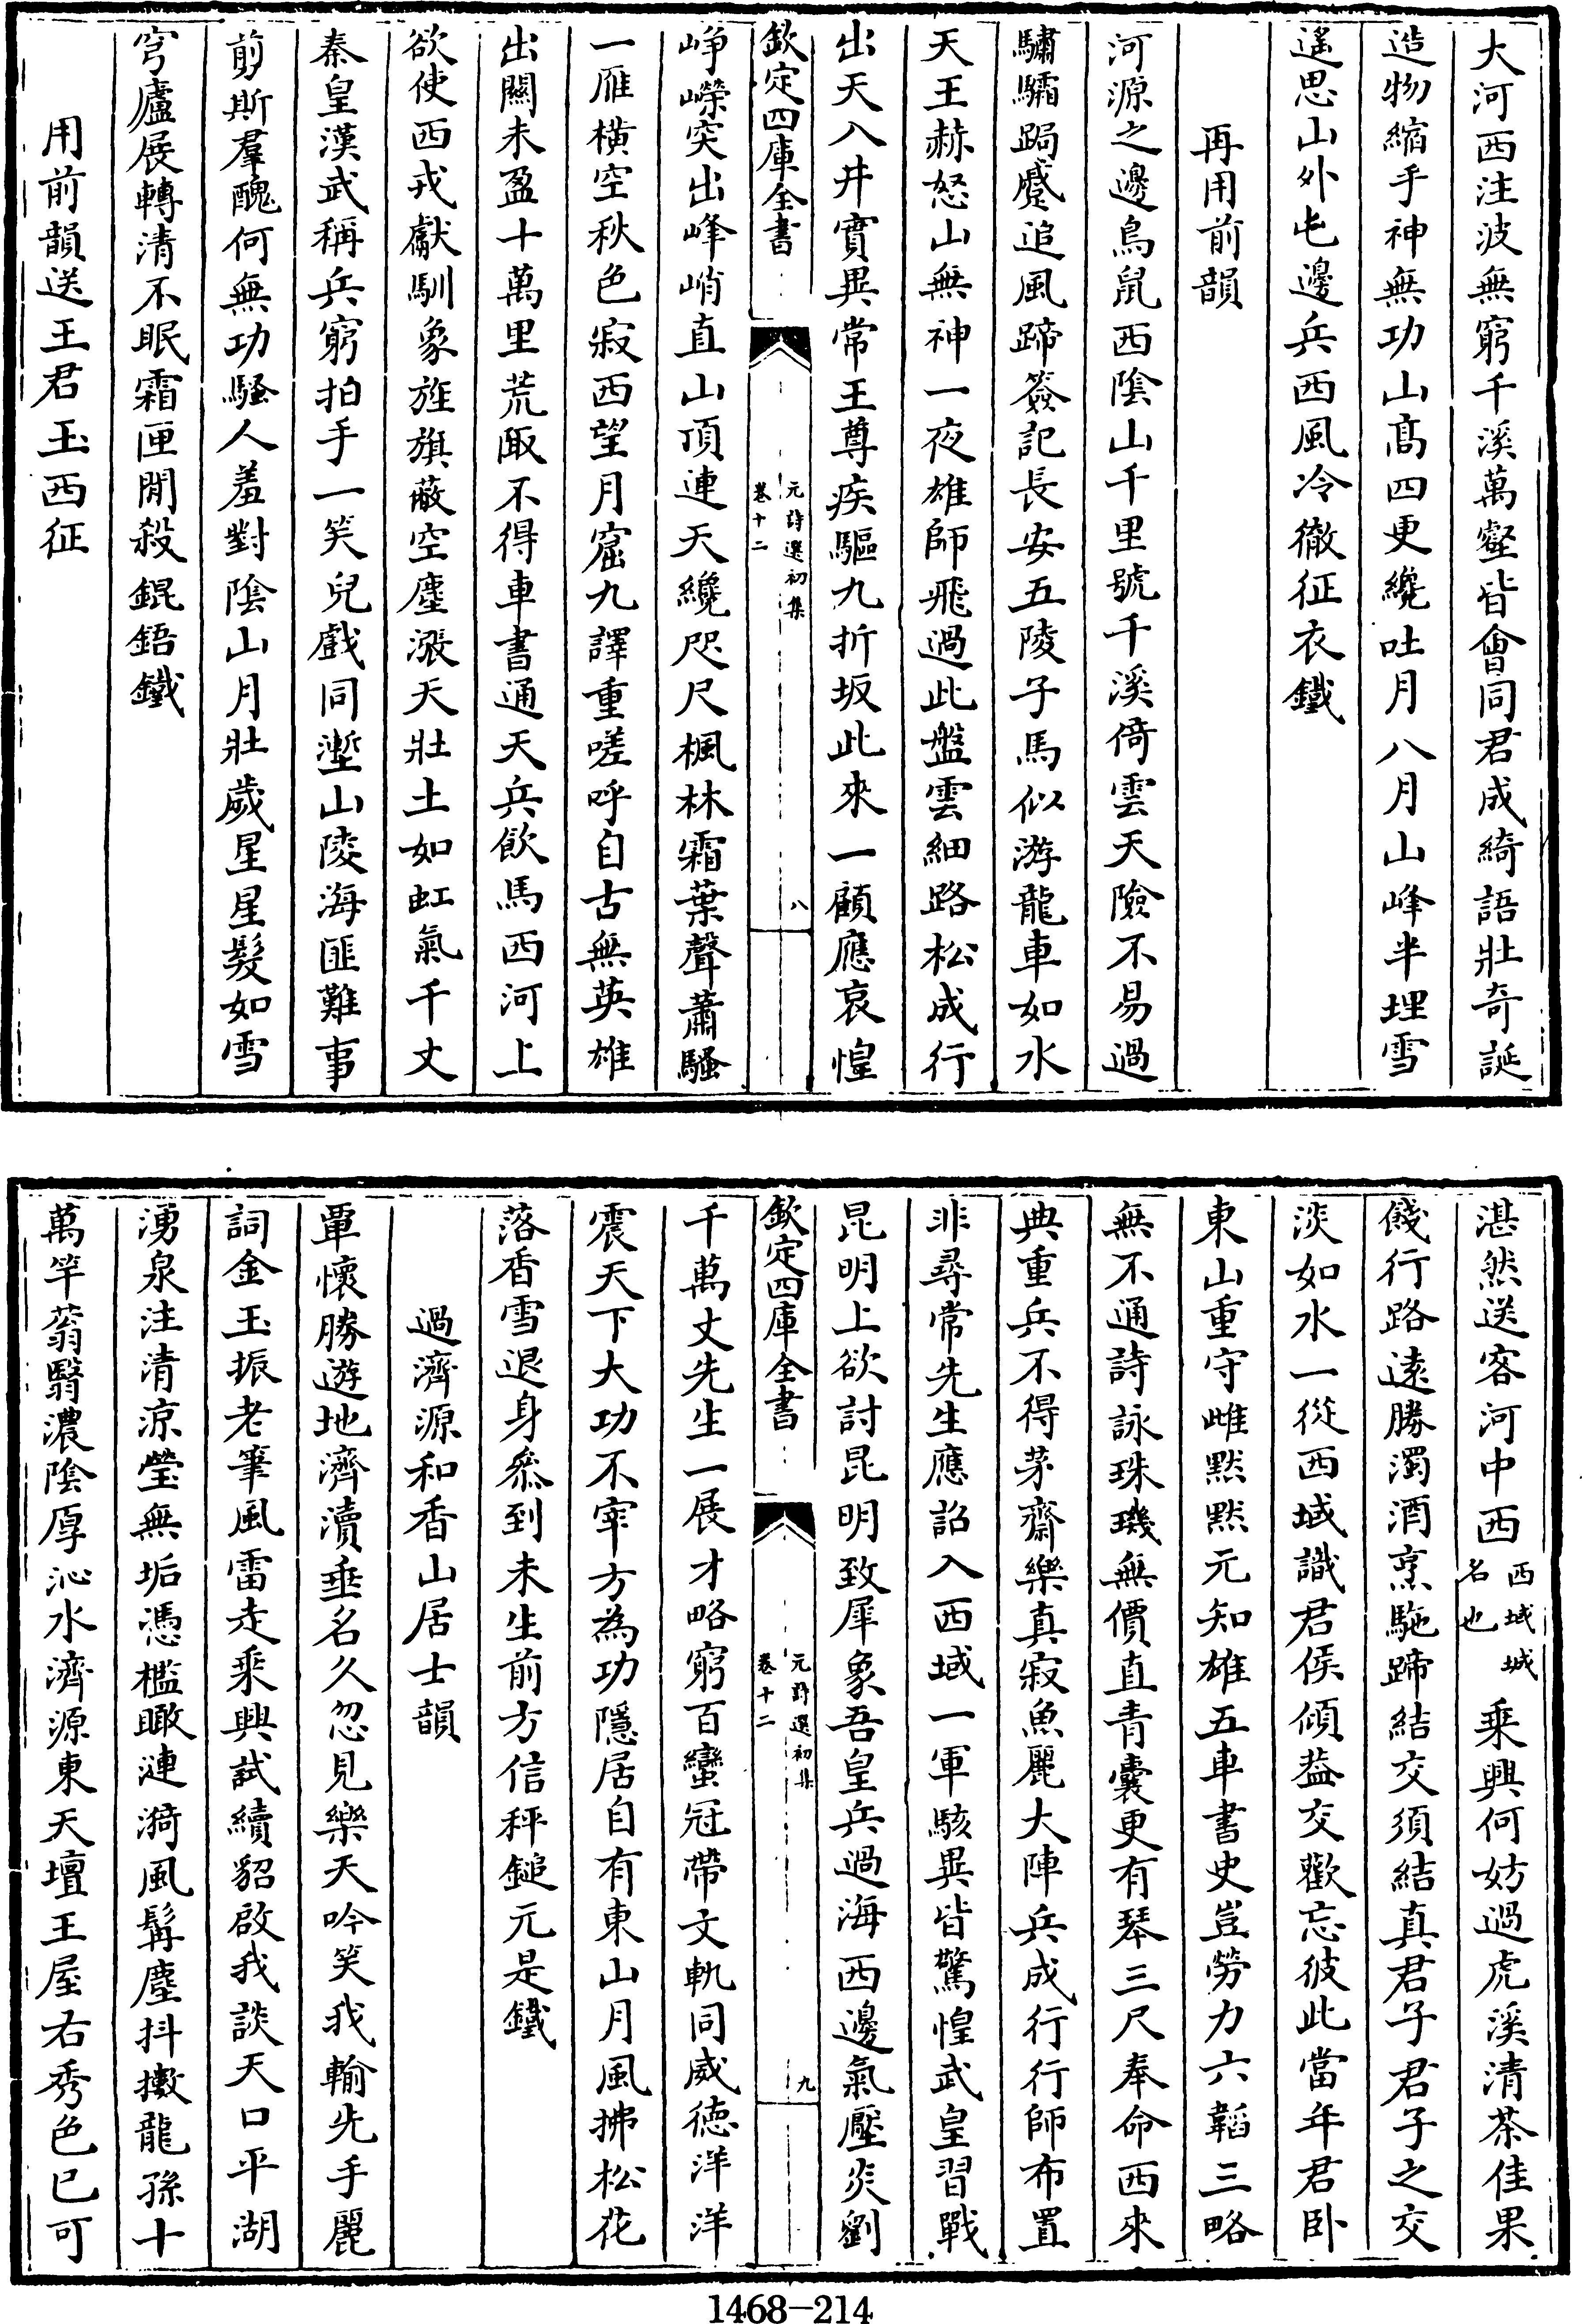 大河西注波無窮千溪萬壑皆會同君成綺語壯奇誕
造物縮手神無功山髙四更纔吐月八月山峰半埋雪
遥思山外屯邊兵西風冷徹征衣鐵
再用前韻
河源之邊鳥鼠西陰山千里號千溪倚雲天險不易過
驌驦跼蹙追風蹄簽記長安五陵子馬似游龍車如水
天王赫怒山無神一夜雄師飛過此盤雲細路松成行
出天入井實異常王尊疾驅九折坂此來一顧應哀惶
欽定四庫全書
元詩選初集
卷十二
八
崢嶸突出峰峭直山頂連天纔咫尺楓林霜葉聲蕭騷
一雁横空秋色寂西望月窟九譯重嗟呼自古無英雄
出關未盈十萬里荒陬不得車書通天兵飲馬西河上
欲使西戎獻馴象旌旗蔽空塵漲天壯士如虹氣千丈
秦皇漢武稱兵窮拍手一笑兒戲同塹山陵海匪難事
剪斯羣醜何無功騷人羞對陰山月壯歲星星髮如雪
穹廬展轉清不眠霜匣閒殺錕鋙鐵
用前韻送王君玉西征
湛然送客河中西西域城名也乘興何妨過虎溪清茶佳果
餞行路遠勝濁酒烹駞蹄結交須結真君子君子之交
淡如水一從西域識君侯傾葢交歡忘彼此當年君卧
東山重守雌黙黙元知雄五車書史豈勞力六韜三略
無不通詩詠珠璣無價直青囊更有琴三尺奉命西來
典重兵不得茅齋樂真寂魚麗大陣兵成行行師布置
非尋常先生應詔入西域一軍駭異皆驚惶武皇習戰
昆明上欲討昆明致犀象吾皇兵過海西邊氣壓炎劉
欽定四庫全書
元詩選初集
卷十二
九
千萬丈先生一展才略窮百蠻冠帶文軌同威德洋洋
震天下大功不宰方為功隱居自有東山月風拂松花
落香雪退身叅到未生前方信秤鎚元是鐵
過濟源和香山居士韻
覃懷勝遊地濟瀆垂名久忽見樂天吟笑我輸先手麗
詞金玉振老筆風雷走乘興試續貂啟我談天口平湖
湧泉注清涼瑩無垢憑檻瞰漣漪風髯塵抖擻龍孫十
萬竿蓊翳濃陰厚沁水濟源東天壇王屋右秀色已可
1468—214